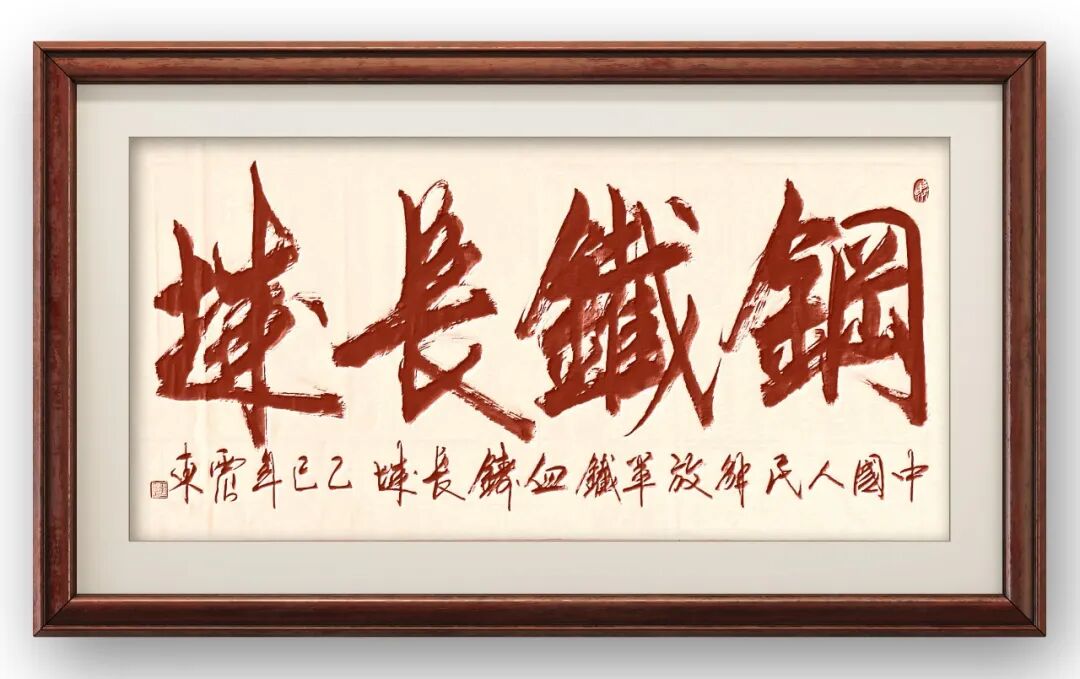 鋼鐵長城
中國人民解放軍鐵血鑄長城 乙巳年震東